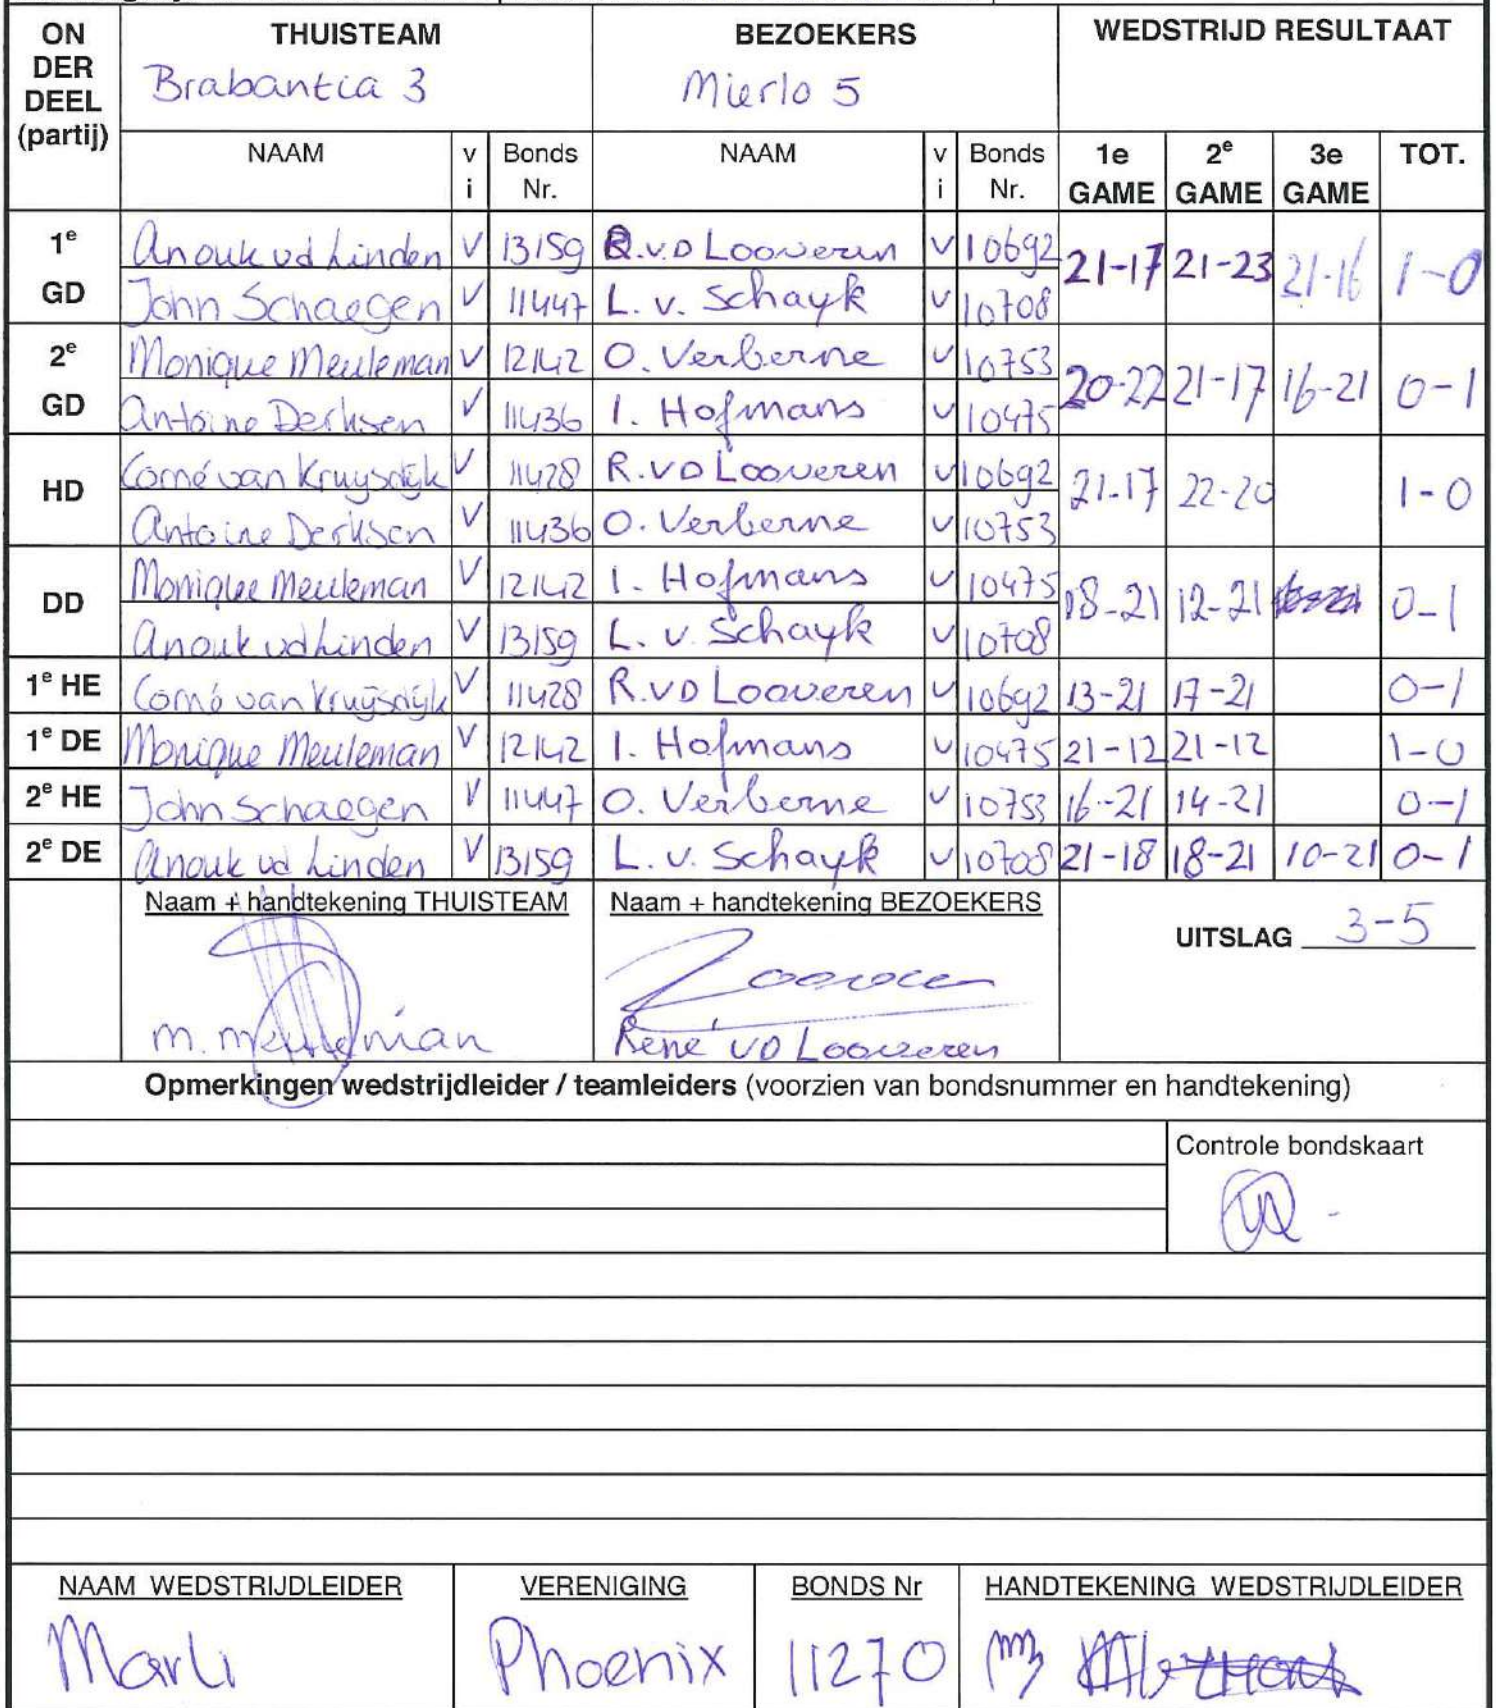 ON DER DEEL (partij) THUISTEAM BEZOEKERS WEDSTRIJD RESULTAAT
Brabantia 3 Mierlo 5
NAAM v i Bonds Nr. NAAM v i Bonds Nr. 1e GAME 2e GAME 3e GAME TOT.
1e GD Anouk vd Linden V 13159 R.v.D Looveren v 10692 21-17 21-23 21-16 1-0
John Schaegen V 11447 L. v. Schayk v 10708
2e GD Monique Meuleman V 12142 O. Verberne v 10753 20-22 21-17 16-21 0-1
Antoine Derksen V 11436 I. Hofmans v 10475
HD Corné van Kruysdijk V 11428 R.VD Looveren v 10692 21-17 22-20 1-0
Antoine Derksen V 11436 O. Verberne v 10753
DD Monique Meuleman V 12142 I. Hofmans v 10475 18-21 12-21 0-1
Anouk vd Linden V 13159 L. v. Schayk v 10708
1e HE Corné van Kruijsdijk V 11428 R.VD Looveren v 10692 13-21 17-21 0-1
1e DE Monique Meuleman V 12142 I. Hofmans v 10475 21-12 21-12 1-0
2e HE John Schaegen V 11447 O. Verberne v 10753 16-21 14-21 0-1
2e DE Anouk vd Linden V 13159 L. v. Schayk v 10708 21-18 18-21 10-21 0-1
Naam + handtekening THUISTEAM Naam + handtekening BEZOEKERS
UITSLAG 3-5
M. Meuleman René VD Looveren
Opmerkingen wedstrijdleider / teamleiders (voorzien van bondsnummer en handtekening)
Controle bondskaart
NAAM WEDSTRIJDLEIDER VERENIGING BONDS Nr HANDTEKENING WEDSTRIJDLEIDER
Marli Phoenix 11270